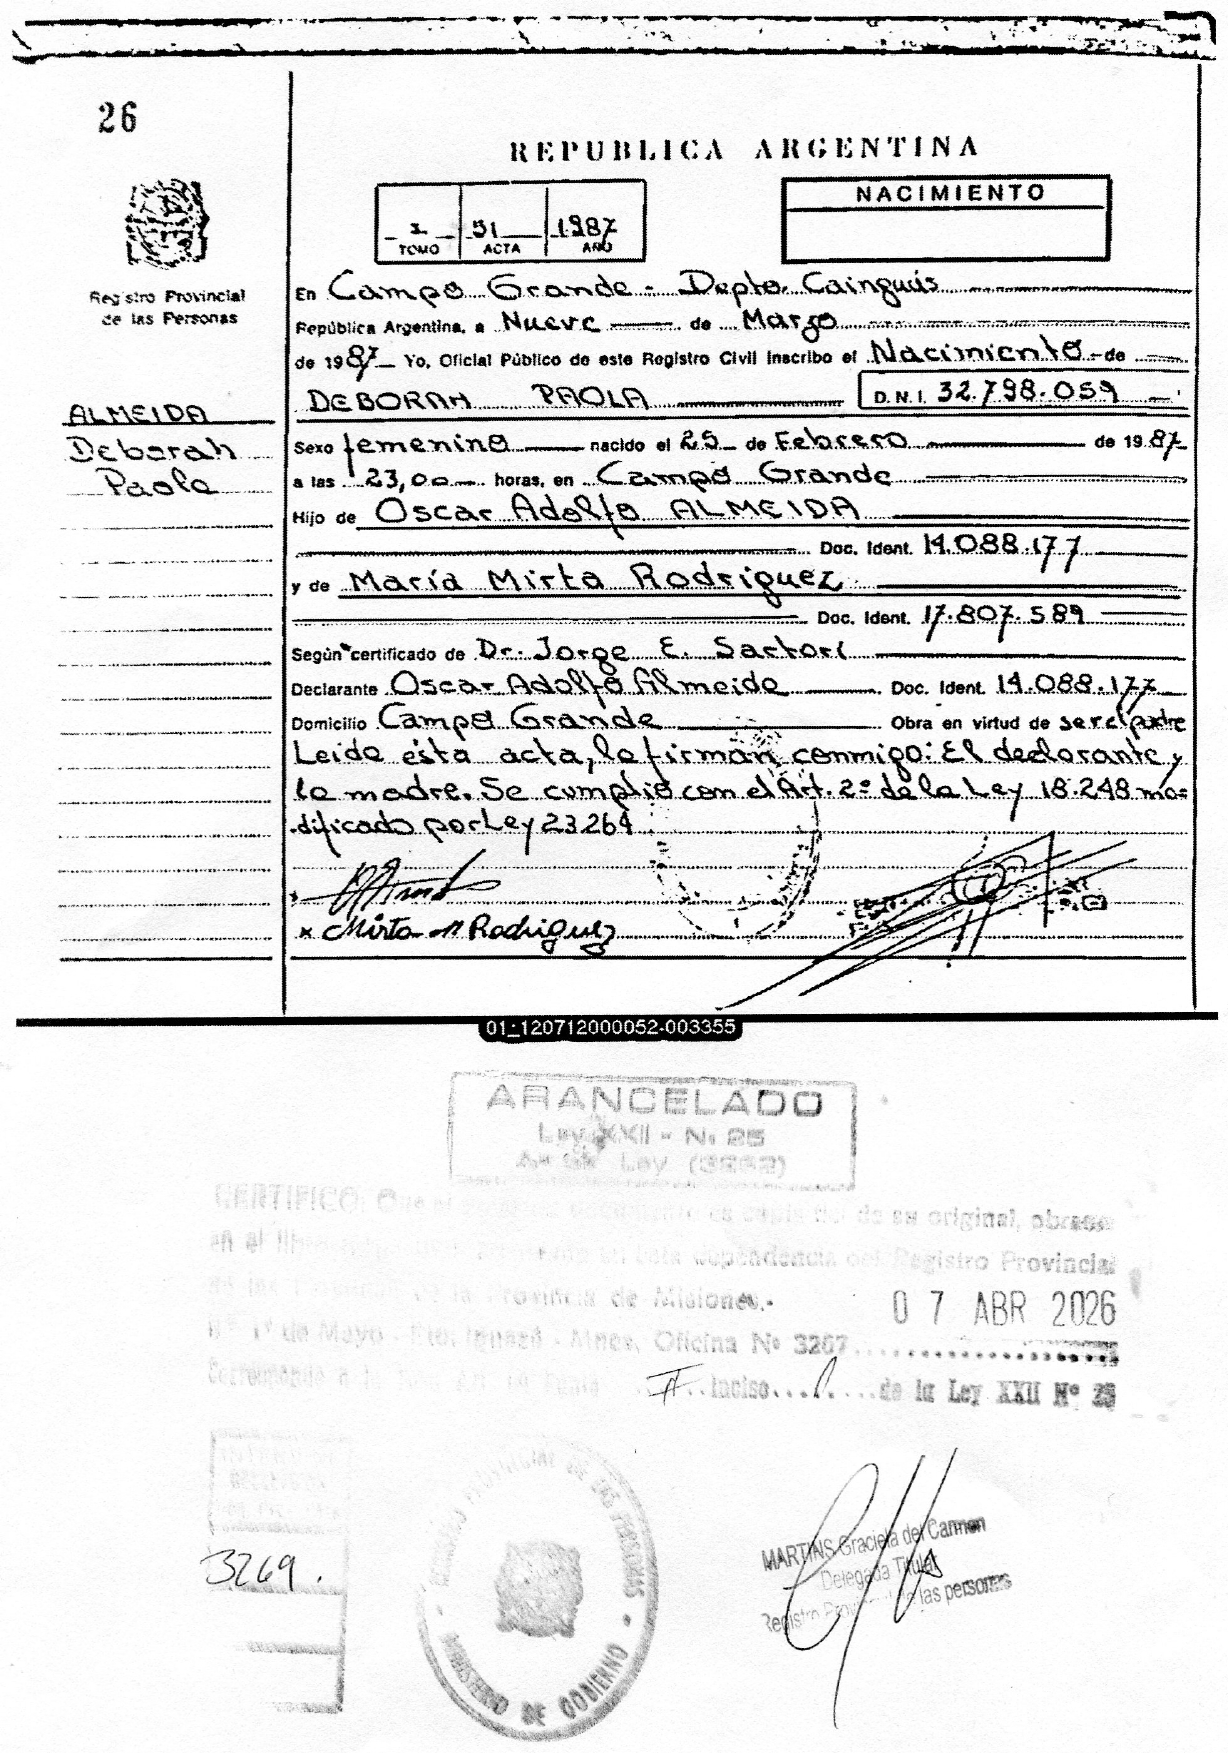 26
REPUBLICA ARGENTINA
NACIMIENTO
51 1987
TOMO ACTA AÑO
Registro Provincial
de las Personas
En Campo Grande - Depto. Cainguás
República Argentina, a Nueve de Marzo
de 1987 Yo, Oficial Público de este Registro Civil Inscribo el Nacimiento de
DEBORAH PAOLA D.N.I. 32.798.059
ALMEIDA
Deborah
Paola
Sexo femenino nacido el 25 de Febrero de 1987
a las 23,00 horas, en Campo Grande
Hijo de Oscar Adolfo ALMEIDA
Doc. Ident. 14.088.177
y de María Mirta Rodriguez
Doc. Ident. 17.807.589
Según certificado de Dr. Jorge E. Sartori
Declarante Oscar Adolfo Almeida Doc. Ident. 14.088.177
Domicilio Campo Grande Obra en virtud de ser el padre
Leida ésta acta, la firman conmigo: El declarante y
la madre. Se cumplió con el Art. 2º de la Ley 18.248 mo=
dificado por Ley 23264
x Mirta M Rodriguez
01_120712000052-003355
ARANCELADO
Ley XXII - Nº 25
Ley (3262)
CERTIFICO: Que el documento es copia fiel de su original, obrante
en el libro dependencia del Registro Provincial
de la Provincia de Misiones.-
07 ABR 2026
1º de Mayo - Pto. Iguazú - Mnes. Oficina Nº 3267
inciso de la Ley XXII Nº 25
3269.
REGISTRO PROVINCIAL DE LAS PERSONAS
MINISTERIO DE GOBIERNO
MARTINS Graciela del Carmen
Delegada Titular
Registro Provincial de las personas